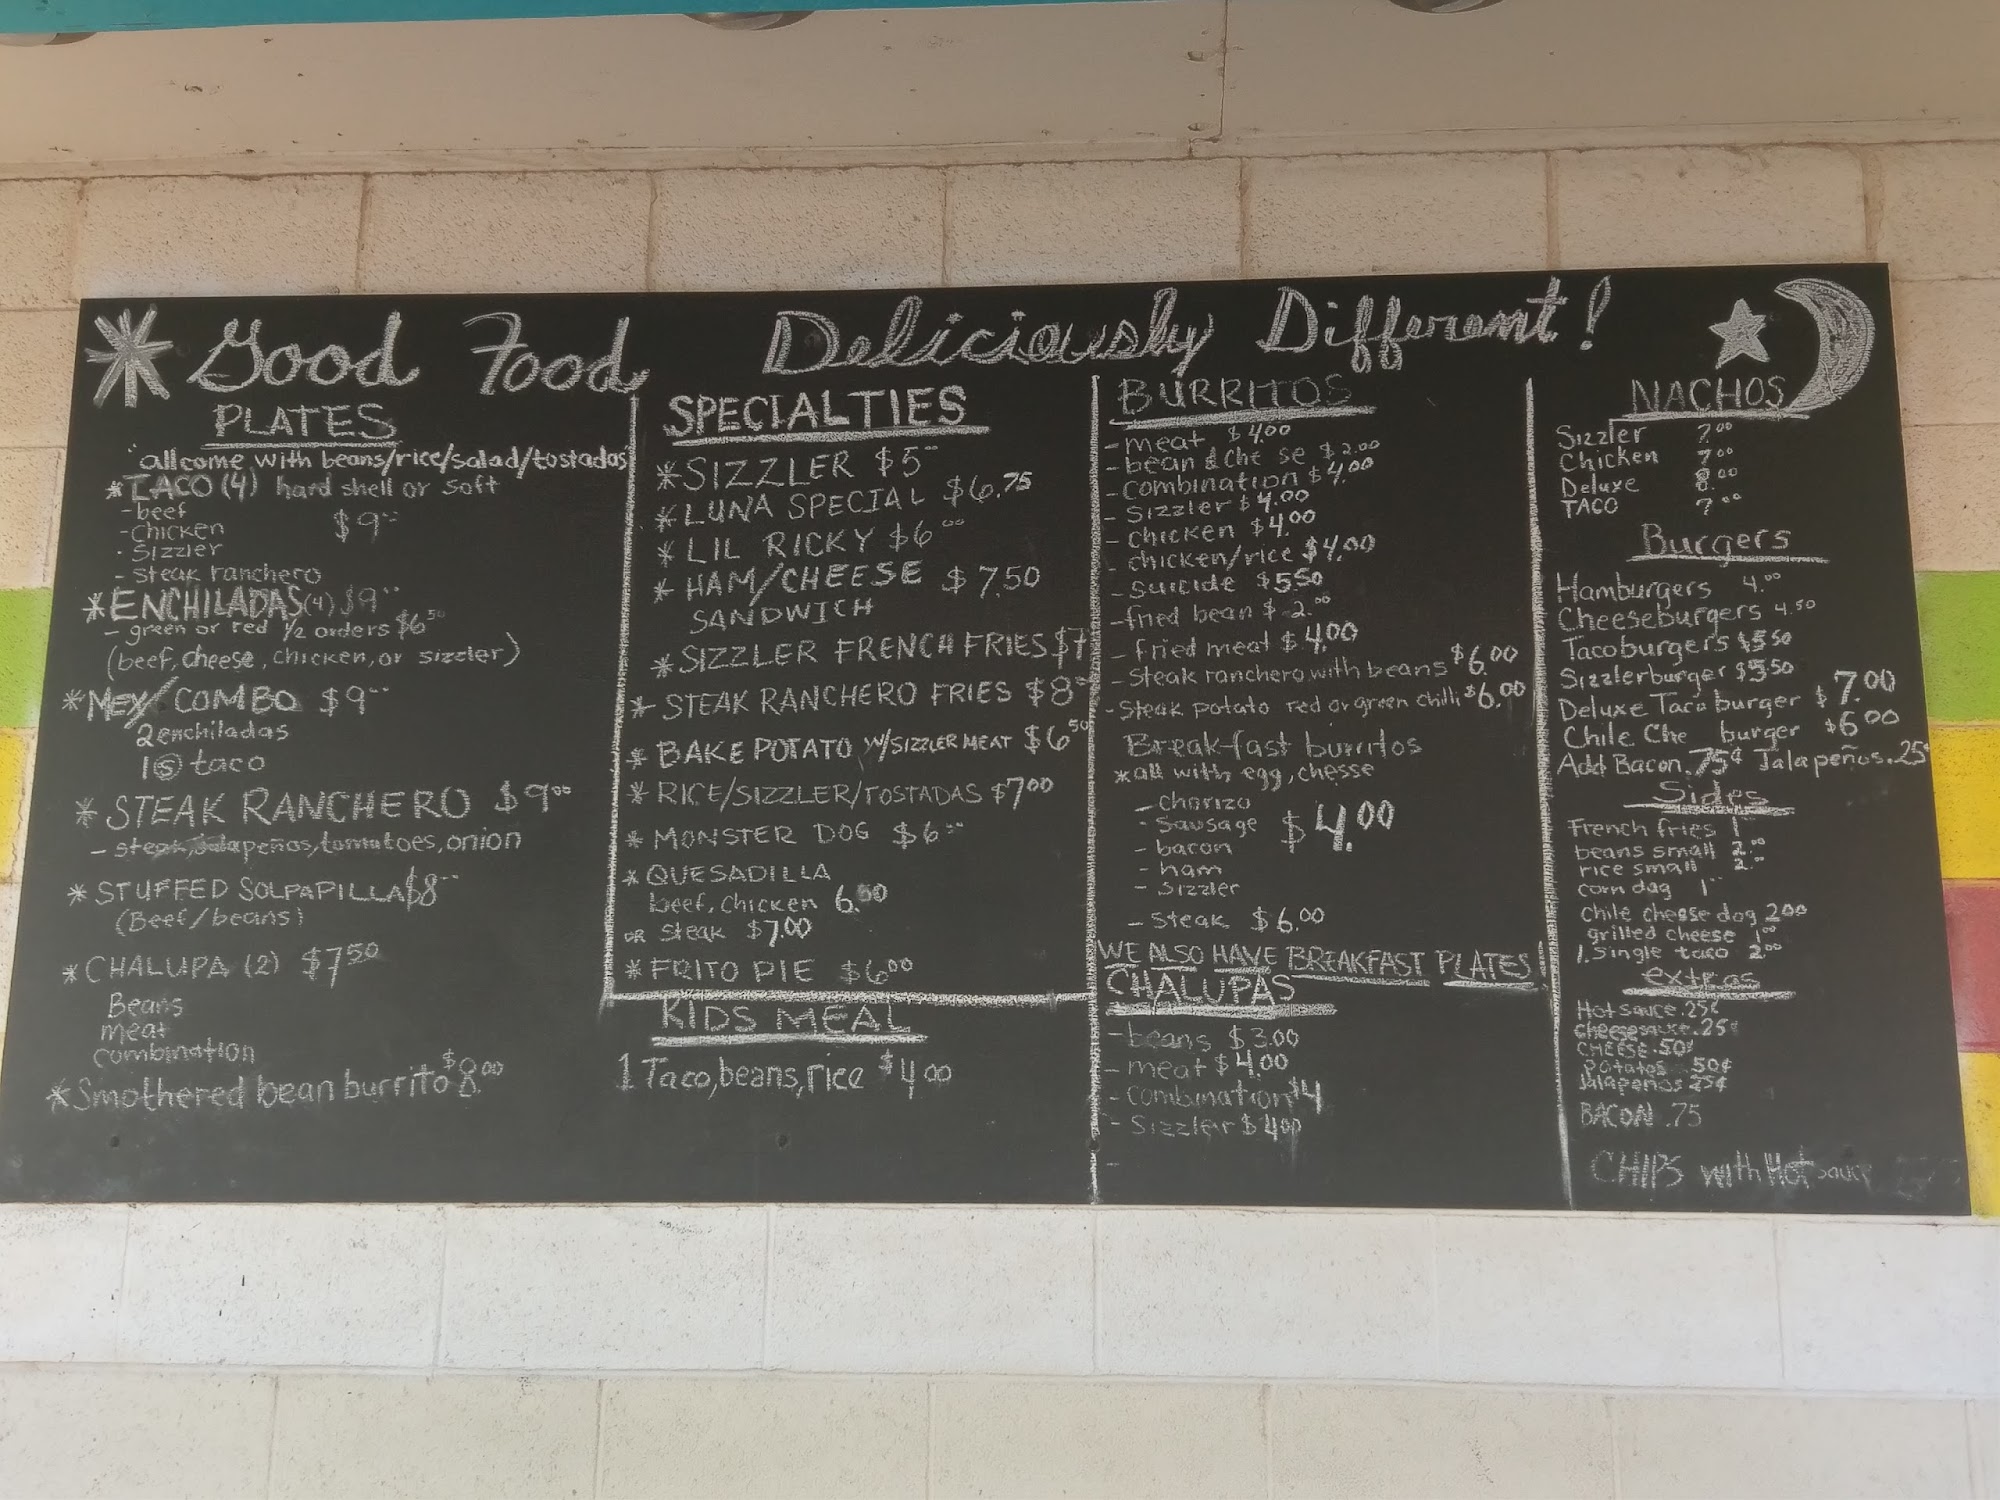 * Good Food, Deliciously Different!
PLATES
"all come with beans/rice/salad/tostadas"
* TACO (4) hard shell or soft
- beef
- chicken $9.00
- Sizzler
- steak ranchero
* ENCHILADAS (4) $9.00
- green or red 1/2 orders $6.50
(beef, cheese, chicken, or sizzler)
* MEX/COMBO $9.00
2 enchiladas
1 (s) taco
* STEAK RANCHERO $9.00
- steak, jalapeños, tomatoes, onion
* STUFFED SOLPAPILLA $8.00
(Beef/beans)
* CHALUPA (2) $7.50
Beans
meat
combination
* Smothered bean burrito $8.00
SPECIALTIES
* SIZZLER $5.00
* LUNA SPECIAL $6.75
* LIL RICKY $6.00
* HAM/CHEESE $7.50
SANDWICH
* SIZZLER FRENCH FRIES $7
* STEAK RANCHERO FRIES $8.00
* BAKE POTATO W/SIZZLER MEAT $6.50
* RICE/SIZZLER/TOSTADAS $7.00
* MONSTER DOG $6.00
* QUESADILLA
beef, chicken 6.50
OR steak $7.00
* FRITO PIE $6.00
KIDS MEAL
1 Taco, beans, rice $4.00
BURRITOS
- meat $4.00
- bean & che se $2.00
- combination $4.00
- Sizzler $4.00
- chicken $4.00
- chicken/rice $4.00
- suicide $5.50
- fried bean $2.00
- fried meat $4.00
- Steak ranchero with beans $6.00
- Steak potato red or green chilli $6.00
Breakfast burritos
* all with egg, chesse
- chorizo
- Sausage $4.00
- bacon
- ham
- Sizzler
- Steak $6.00
WE ALSO HAVE BREAKFAST PLATES!
CHALUPAS
- beans $3.00
- meat $4.00
- combination $4
- Sizzler $4.00
-
NACHOS
Sizzler 7.00
Chicken 7.00
Deluxe 8.00
TACO 7.00
Burgers
Hamburgers 4.00
Cheeseburgers 4.50
Tacoburgers $5.50
Sizzlerburger $5.50
Deluxe Taco burger $7.00
Chile Che burger $6.00
Add Bacon .75¢ Jalapeños .25¢
Sides
French fries 1
beans small 2.00
rice small 2.00
corn dog 1
chile cheese dog 2.00
grilled cheese 1.00
1. Single taco 2.00
extras
Hot sauce .25¢
cheesesauce .25¢
CHEESE .50¢
Potatos .50¢
Jalapeños 25¢
BACON .75
CHIPS with Hot sauce